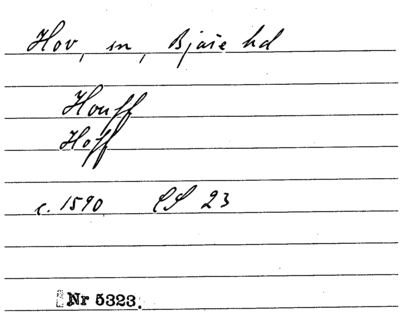 Hov, sn, Bjäre hd
Houff
Hoff
c. 1590 LS 23
Nr 5323.